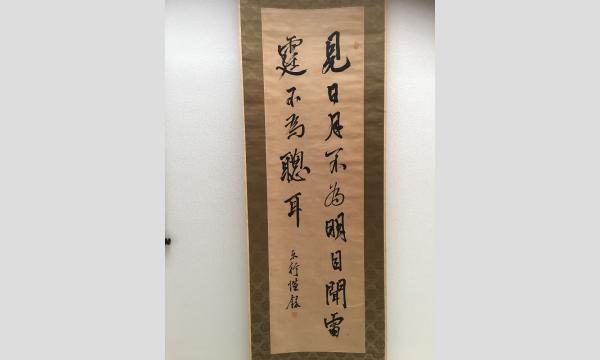 見日月不為明目聞雷
霆不為聰耳